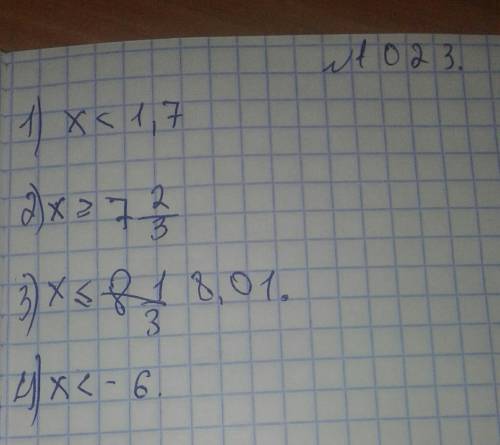 №1023.
1) x < 1,7
2) x ≥ 7 2/3
3) x ≤ 8 1/3 8,01.
4) x < - 6.